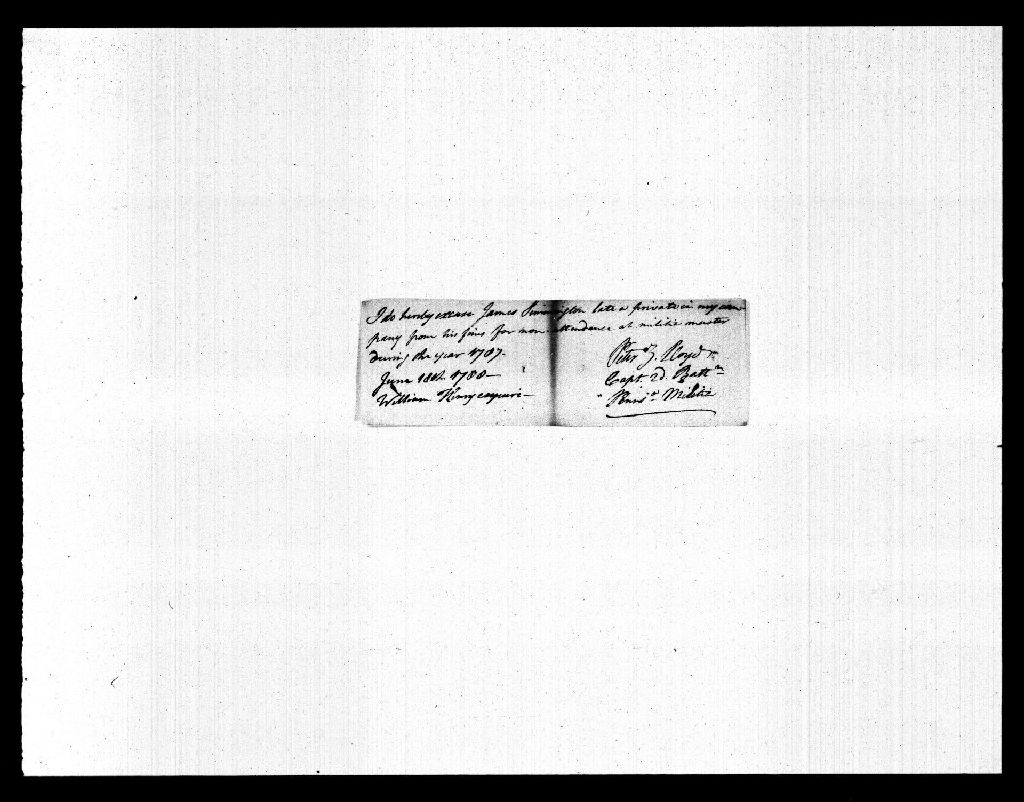 I do herby excuse James Simmington late a private in my com-
pany from his fines for non attendance at militia muster
During the year 1787-
June 18th. 1788-
William Henry esquire-
Peter Z. Lloyd
Capt. 2d. Battn
Penns.a Militia